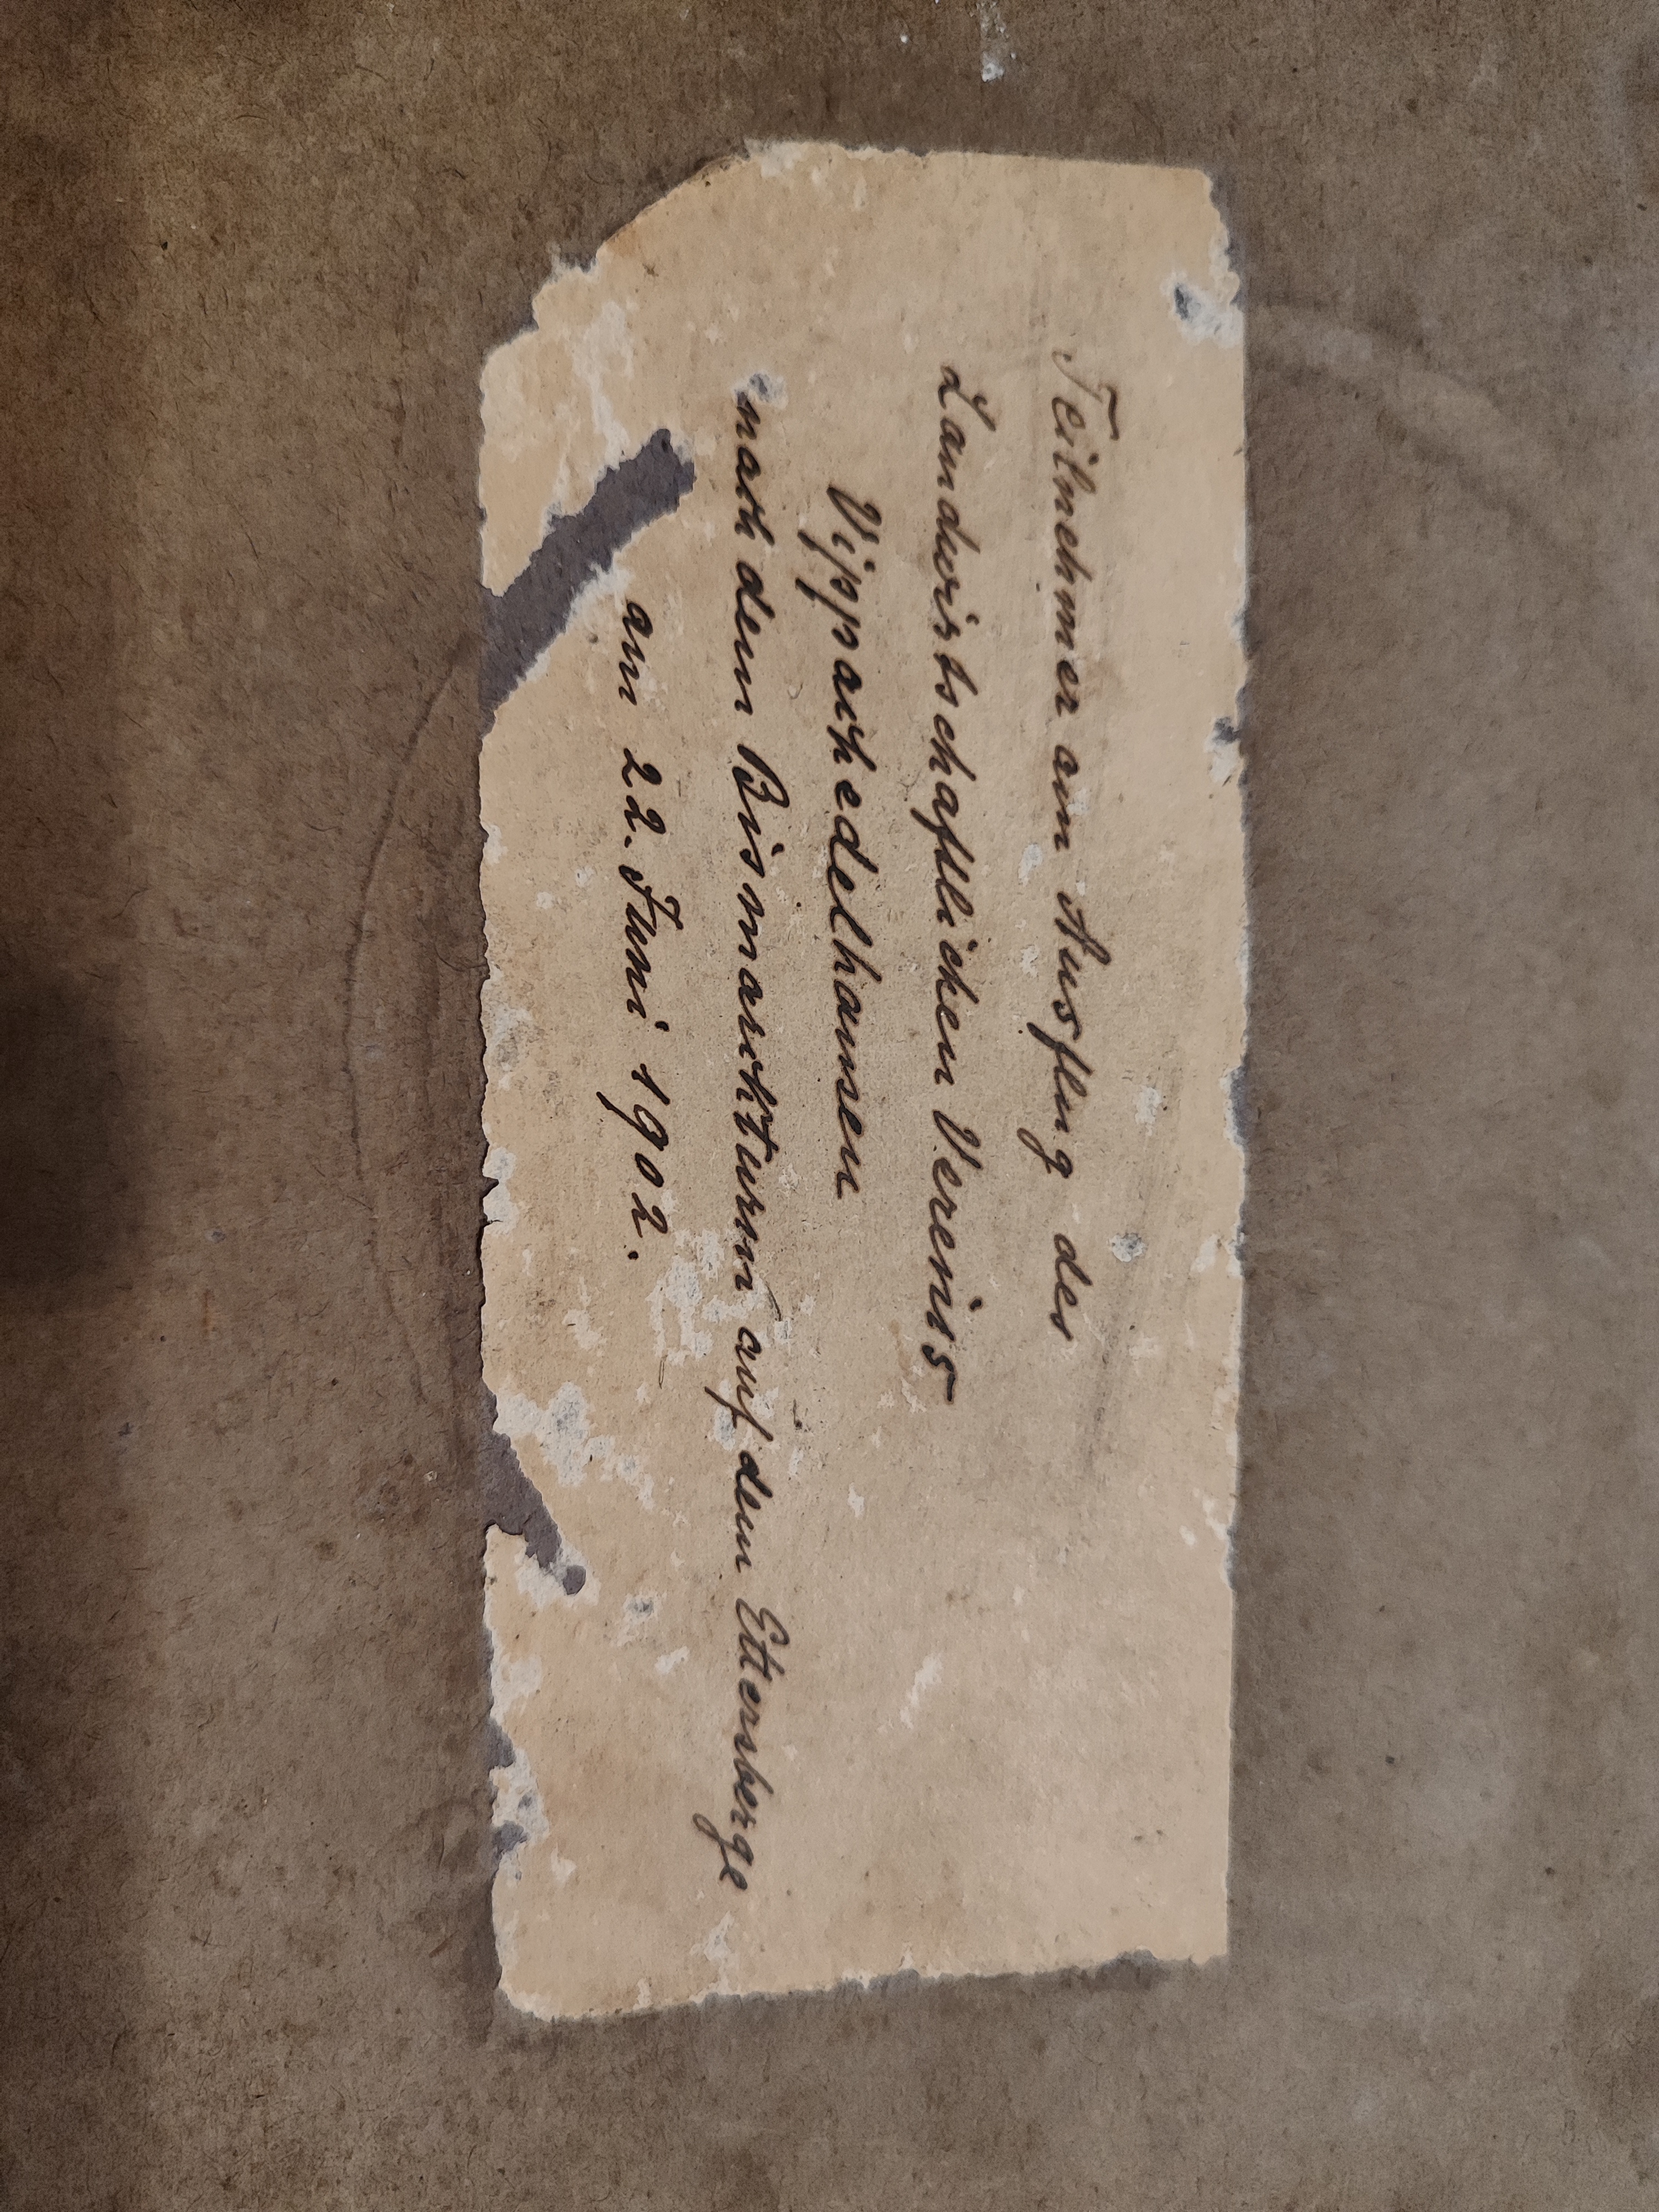 Teilnehmer am Ausflug des
Landwirtschaftlichen Vereins
Vippachedelhausen
nach dem Bismarckturm auf dem Ettersberge
am 22. Juni 1902.